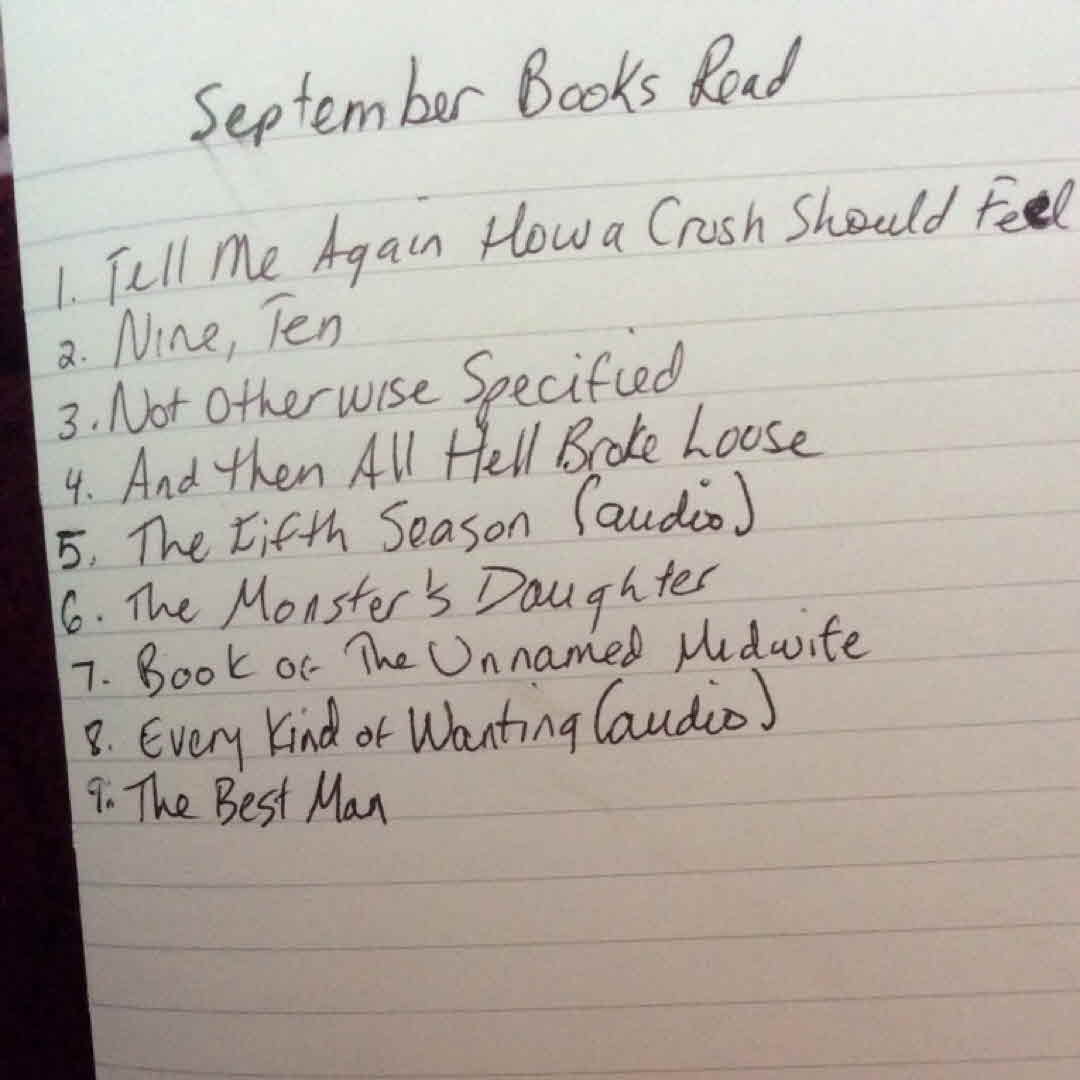 September Books Read
1. Tell Me Again How a Crush Should Feel
2. Nine, Ten
3. Not Otherwise Specified
4. And then All Hell Broke Loose
5. The Fifth Season (audio)
6. The Monster's Daughter
7. Book of The Unnamed Midwife
8. Every Kind of Wanting (audio)
9. The Best Man